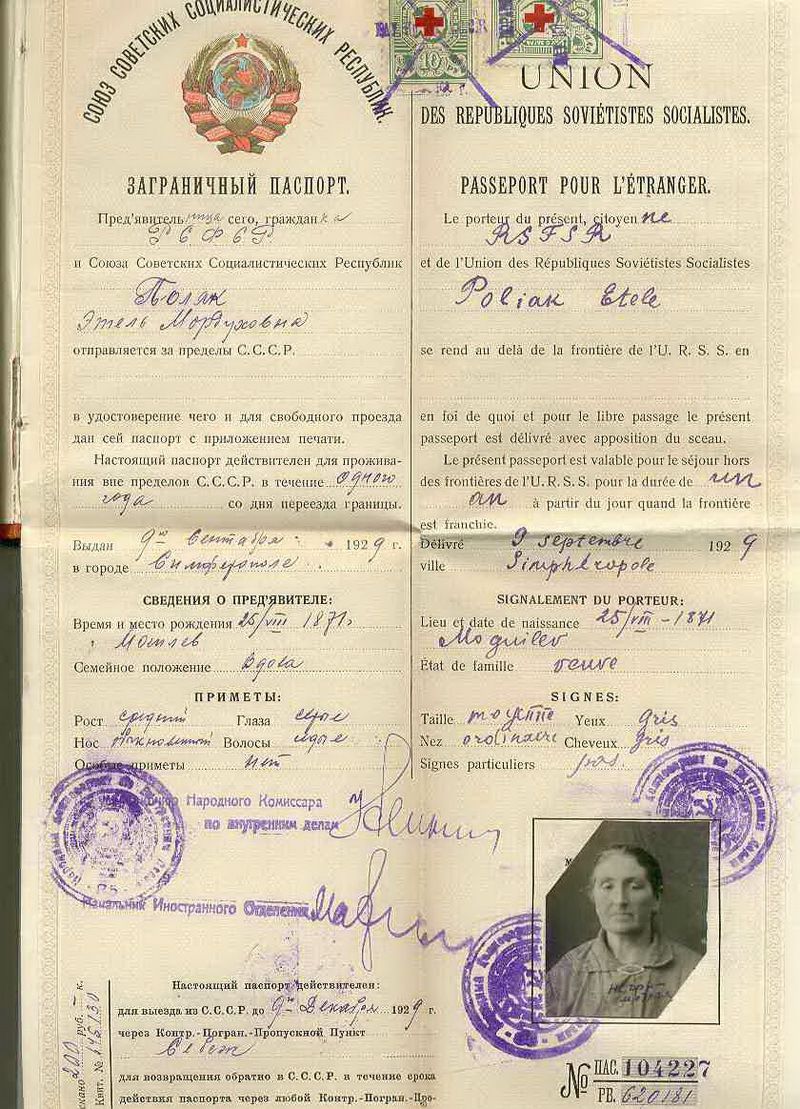 СОЮЗ СОВЕТСКИХ СОЦИАЛИСТИЧЕСКИХ РЕСПУБЛИК.
ЗАГРАНИЧНЫЙ ПАСПОРТ.
Пред'явительница сего, гражданка
РСФСР
и Союза Советских Социалистических Республик
Поляк
Этель Мордуховна
отправляется за пределы С.С.С.Р.
в удостоверение чего и для свободного проезда
дан сей паспорт с приложением печати.
Настоящий паспорт действителен для прожива-
ния вне пределов С.С.С.Р. в течение одного
года со дня переезда границы.
Выдан 9го Сентября 1929 г.
в городе Симферополе.
СВЕДЕНИЯ О ПРЕД'ЯВИТЕЛЕ:
Время и место рождения 25/VIII 1871
Могилев
Семейное положение Вдова
ПРИМЕТЫ:
Рост средний Глаза серые
Нос Волосы седые
Особые приметы нет
Народного Комиссара
по внутренним делам
Начальник Иностранного Отделения
Настоящий паспорт действителен:
для выезда из С.С.С.Р. до 9го Декабря 1929 г.
через Контр.-Погран.-Пропускной Пункт
Себеж
для возвращения обратно в С.С.С.Р. в течение срока
действия паспорта через любой Контр.-Погран.-Про-
200 руб. — к.
Квит. №
10
UNION
DES REPUBLIQUES SOVIÉTISTES SOCIALISTES.
PASSEPORT POUR L'ÉTRANGER.
Le porteur du présent, citoyenne
RSFSR
et de l'Union des Républiques Soviétistes Socialistes
Poliak Etele
se rend au delà de la frontière de l'U. R. S. S. en
en foi de quoi et pour le libre passage le présent
passeport est délivré avec apposition du sceau.
Le présent passeport est valable pour le séjour hors
des frontières de l'U.R.S.S. pour la durée de un
an à partir du jour quand la frontière
est franchie.
Délivré 9 septembre 1929
ville Simphéropole
SIGNALEMENT DU PORTEUR:
Lieu et date de naissance 25/VIII - 1871
Moguilev
État de famille veuve
SIGNES:
Taille moyenne Yeux gris
Nez ordinaire Cheveux gris
Signes particuliers pas.
неграмотная
№ ПАС. 104227
РЕ. 620181